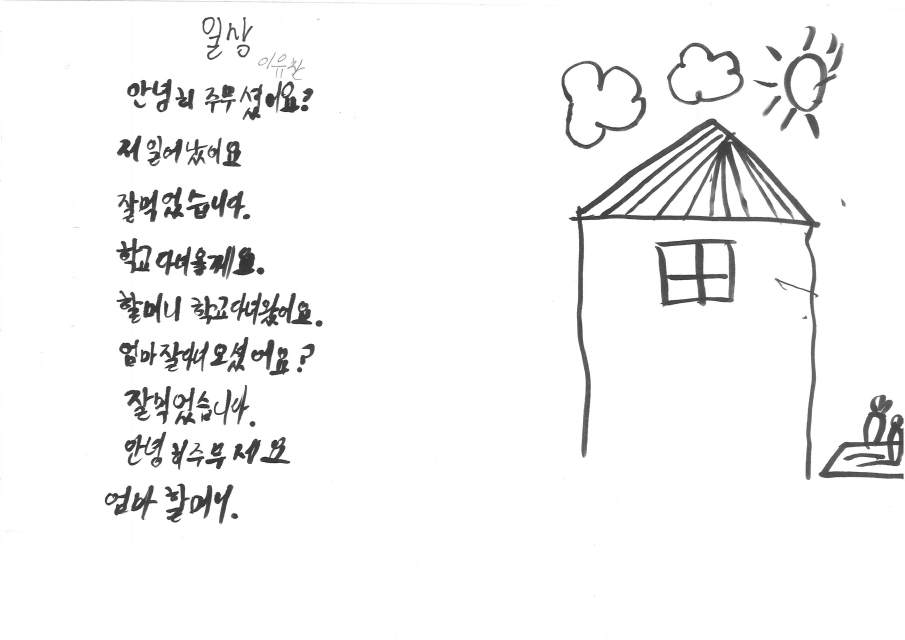 일상
이유찬
안녕히 주무셨어요?
저 일어났어요
잘먹었습니다.
학교다녀올께요.
할머니 학교다녀왔어요.
엄마잘다녀오셨어요?
잘먹었습니다.
안녕히주무세요
엄마 할머니.